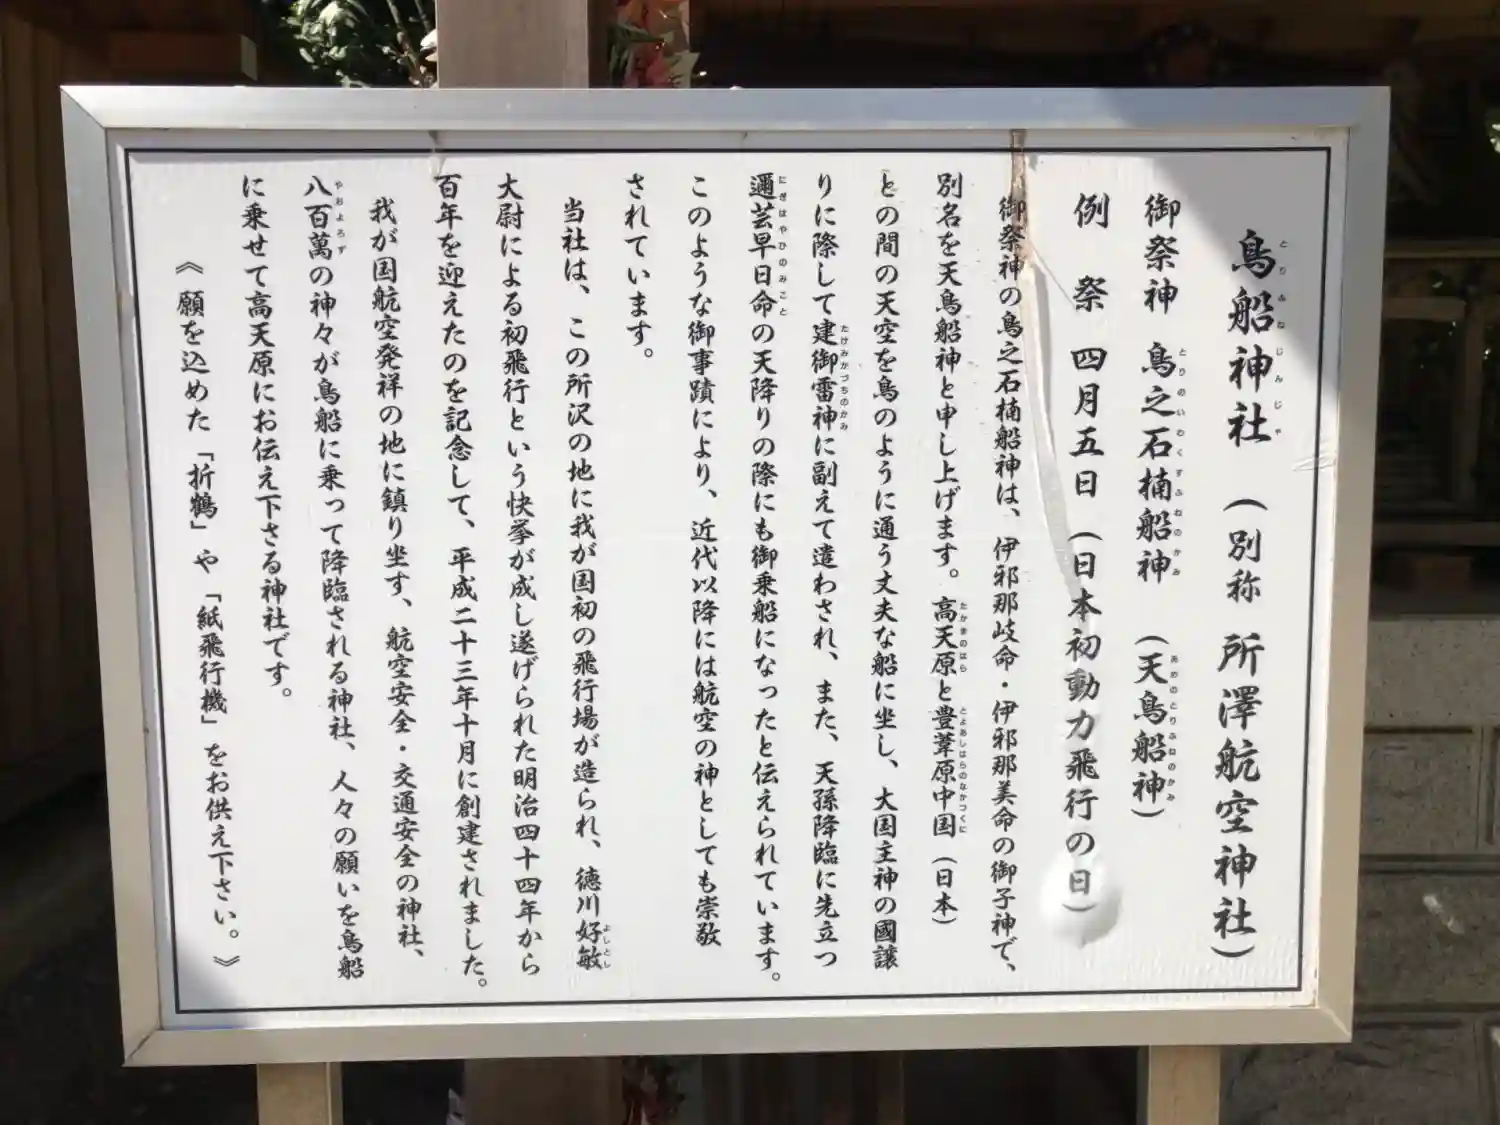 鳥船神社 (別称 所澤航空神社)
御祭神 鳥之石楠船神 (天鳥船神)
例 祭 四月五日 (日本初動力飛行の日)
御祭神の鳥之石楠船神は、伊邪那岐命・伊邪那美命の御子神で、
別名を天鳥船神と申し上げます。高天原と豊葦原中国(日本)
との間の天空を鳥のように通う丈夫な船に坐し、大国主神の國譲
りに際して建御雷神に副えて遣わされ、また、天孫降臨に先立つ
邇芸早日命の天降りの際にも御乗船になったと伝えられています。
このような御事蹟により、近代以降には航空の神としても崇敬
されています。
当社は、この所沢の地に我が国初の飛行場が造られ、徳川好敏
大尉による初飛行という快挙が成し遂げられた明治四十四年から
百年を迎えたのを記念して、平成二十三年十月に創建されました。
我が国航空発祥の地に鎮り坐す、航空安全・交通安全の神社、
八百萬の神々が鳥船に乗って降臨される神社、人々の願いを鳥船
に乗せて高天原にお伝え下さる神社です。
《願を込めた「折鶴」や「紙飛行機」をお供え下さい。》